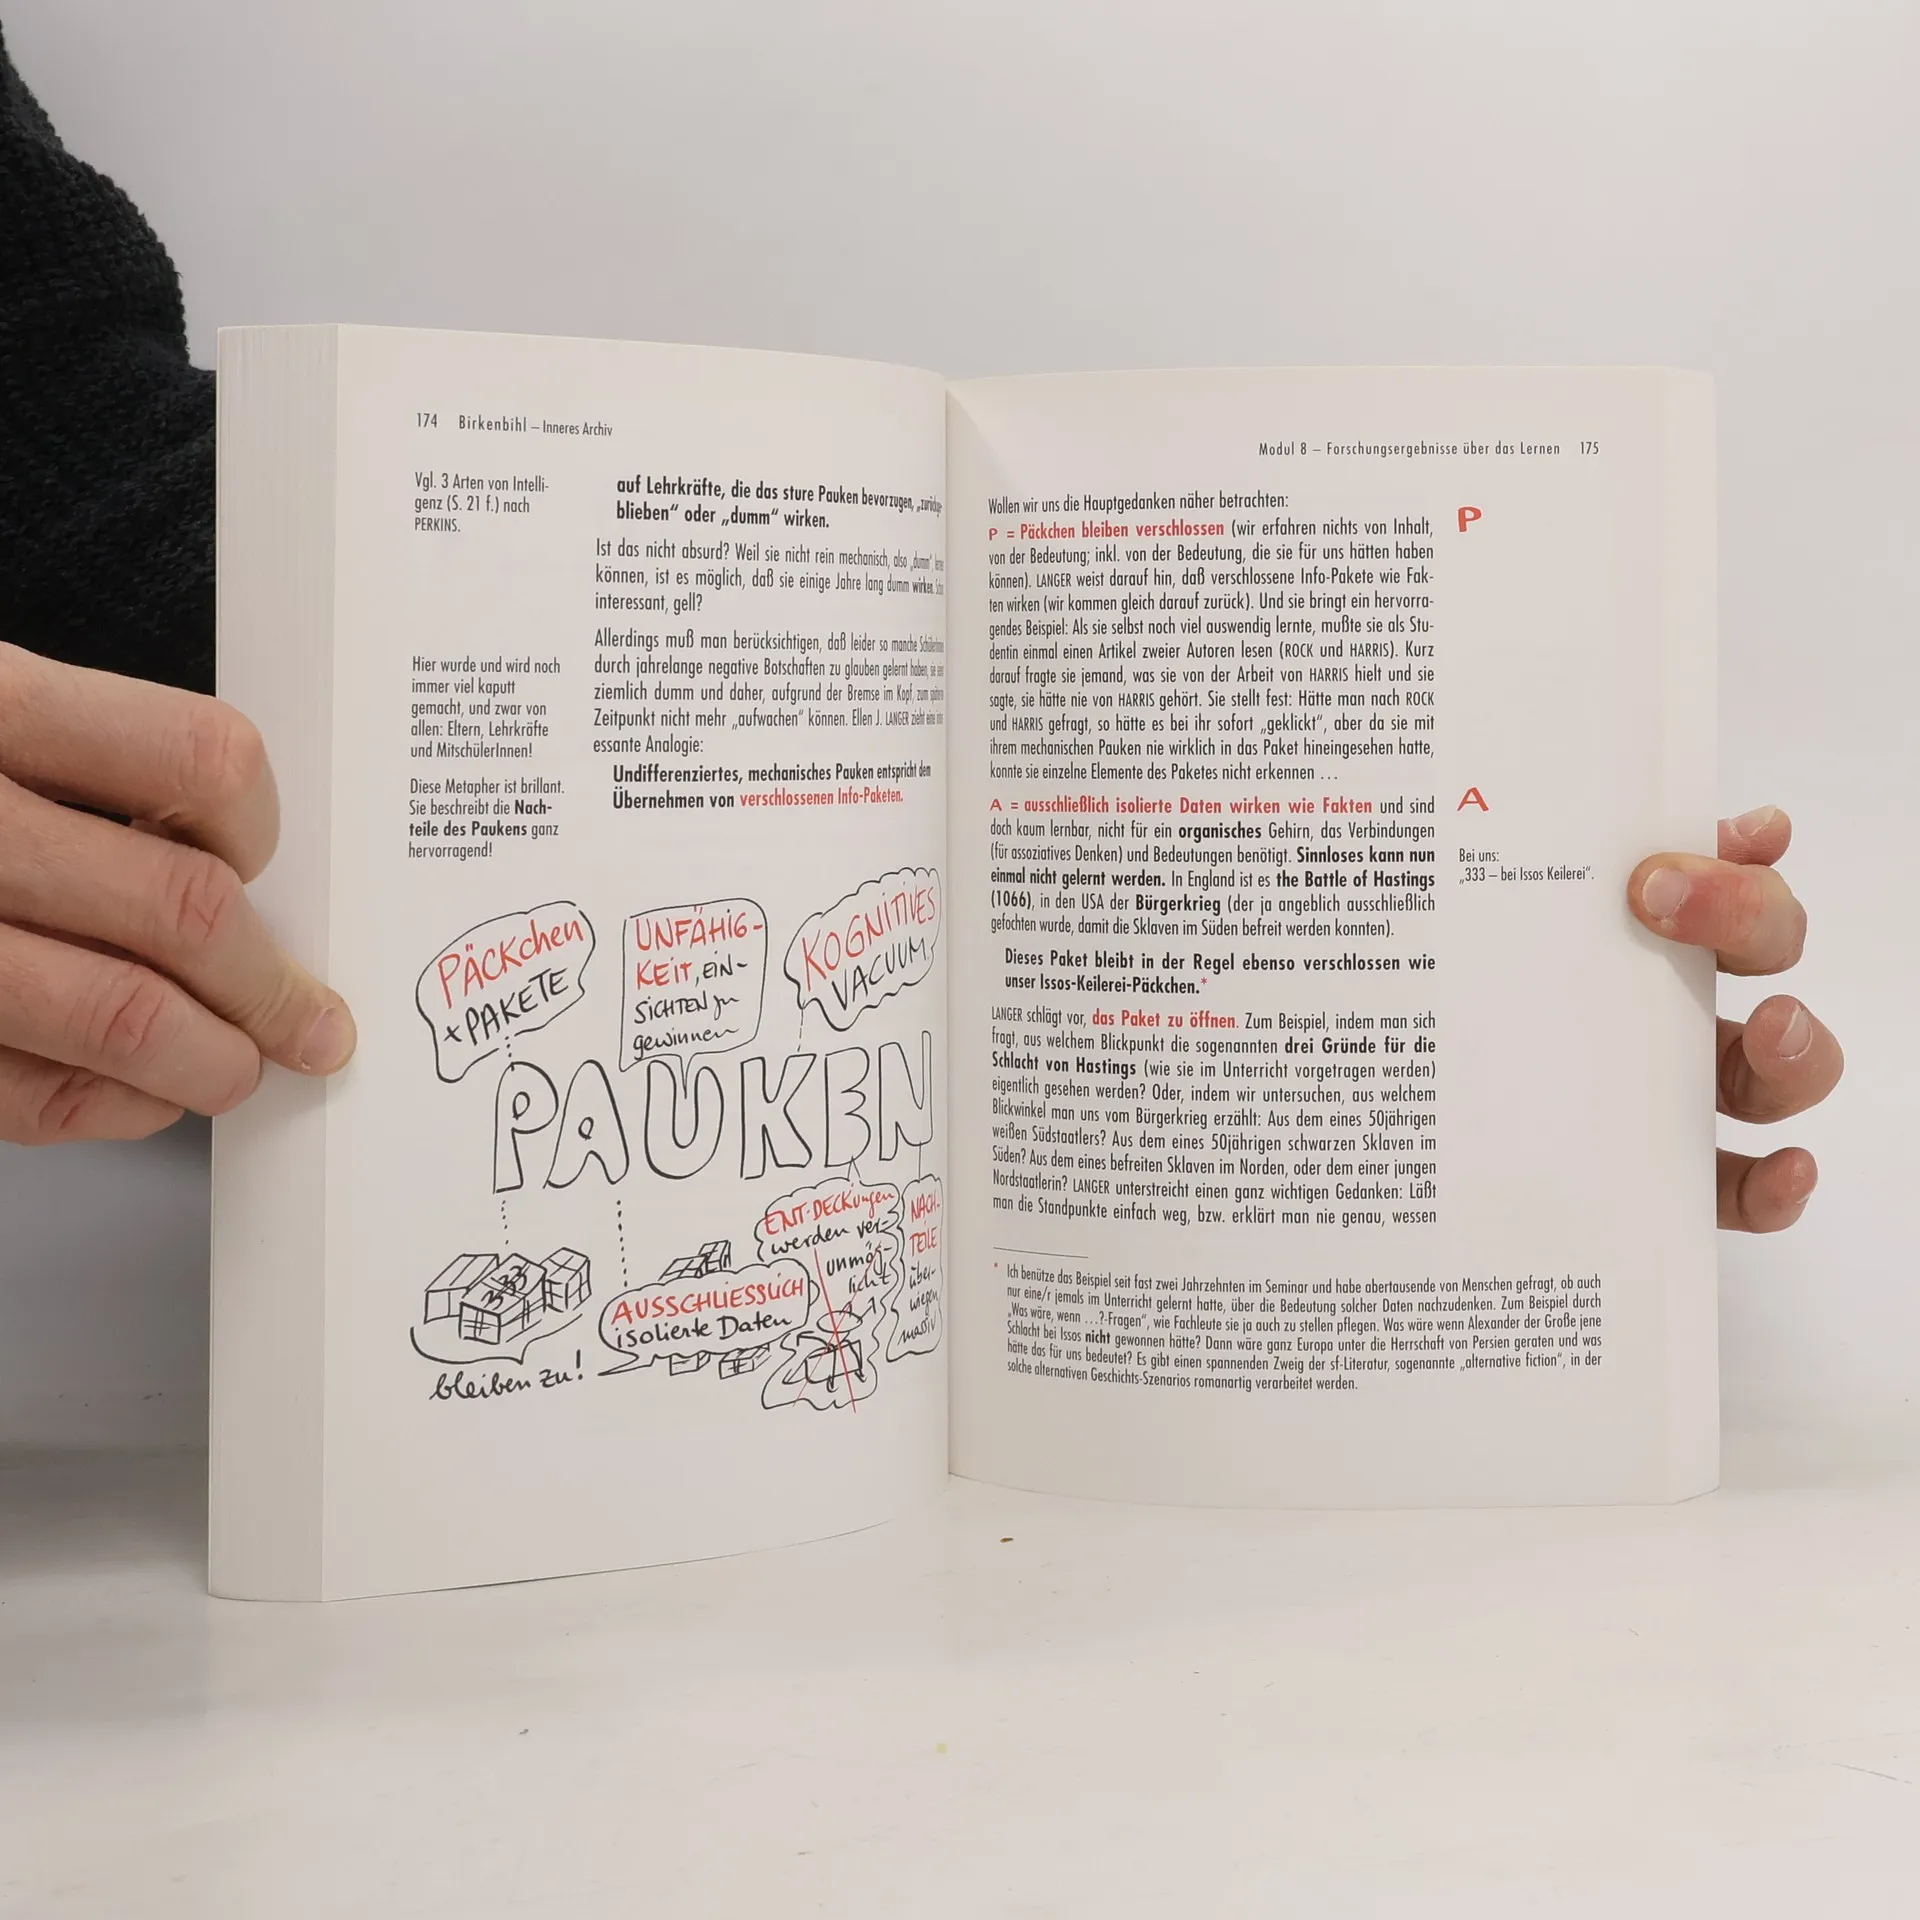 174 Birkenbihl – Inneres Archiv
Vgl. 3 Arten von Intelli-
genz (S. 21 f.) nach
PERKINS.
auf Lehrkräfte, die das sture Pauken bevorzugen,
blieben“ oder „dumm“ wirken.
Ist das nicht absurd? Weil sie nicht rein mechanisch, also „dumm“,
können, ist es möglich, daß sie einige Jahre lang dumm wirken.
interessant, gell?
Hier wurde und wird noch
immer viel kaputt
gemacht, und zwar von
allen: Eltern, Lehrkräfte
und MitschülerInnen!
Allerdings muß man berücksichtigen, daß leider so manche SchülerInnen
durch jahrelange negative Botschaften zu glauben gelernt haben, sie
ziemlich dumm und daher, aufgrund der Bremse im Kopf, zum
Zeitpunkt nicht mehr „aufwachen“ können. Ellen J. LANGER zieht eine
essante Analogie:
Diese Metapher ist brillant.
Sie beschreibt die Nach-
teile des Paukens ganz
hervorragend!
Undifferenziertes, mechanisches Pauken entspricht dem
Übernehmen von verschlossenen Info-Paketen.
PÄCKchen
+ PAKETE
UNFÄHIG-
KEIT, EIN-
SICHTEN zu
gewinnen
KOGNITIVES
VACUUM
PAUKEN
333
bleiben zu!
AUSSCHLIESSLICH
isolierte Daten
ENT-DECKungen
werden ver-
unmög-
licht
NACH-
TEILE
über-
wiegen
massiv
Modul 8 – Forschungsergebnisse über das Lernen 175
Wollen wir uns die Hauptgedanken näher betrachten:
P = Päckchen bleiben verschlossen (wir erfahren nichts von Inhalt,
von der Bedeutung; inkl. von der Bedeutung, die sie für uns hätten haben
können). LANGER weist darauf hin, daß verschlossene Info-Pakete wie Fak-
ten wirken (wir kommen gleich darauf zurück). Und sie bringt ein hervorra-
gendes Beispiel: Als sie selbst noch viel auswendig lernte, mußte sie als Stu-
dentin einmal einen Artikel zweier Autoren lesen (ROCK und HARRIS). Kurz
darauf fragte sie jemand, was sie von der Arbeit von HARRIS hielt und sie
sagte, sie hätte nie von HARRIS gehört. Sie stellt fest: Hätte man nach ROCK
und HARRIS gefragt, so hätte es bei ihr sofort „geklickt“, aber da sie mit
ihrem mechanischen Pauken nie wirklich in das Paket hineingesehen hatte,
konnte sie einzelne Elemente des Paketes nicht erkennen …
P
A = ausschließlich isolierte Daten wirken wie Fakten und sind
doch kaum lernbar, nicht für ein organisches Gehirn, das Verbindungen
(für assoziatives Denken) und Bedeutungen benötigt. Sinnloses kann nun
einmal nicht gelernt werden. In England ist es the Battle of Hastings
(1066), in den USA der Bürgerkrieg (der ja angeblich ausschließlich
gefochten wurde, damit die Sklaven im Süden befreit werden konnten).
A
Bei uns:
„333 – bei Issos Keilerei“.
Dieses Paket bleibt in der Regel ebenso verschlossen wie
unser Issos-Keilerei-Päckchen.*
LANGER schlägt vor, das Paket zu öffnen. Zum Beispiel, indem man sich
fragt, aus welchem Blickpunkt die sogenannten drei Gründe für die
Schlacht von Hastings (wie sie im Unterricht vorgetragen werden)
eigentlich gesehen werden? Oder, indem wir untersuchen, aus welchem
Blickwinkel man uns vom Bürgerkrieg erzählt: Aus dem eines 50jährigen
weißen Südstaatlers? Aus dem eines 50jährigen schwarzen Sklaven im
Süden? Aus dem eines befreiten Sklaven im Norden, oder dem einer jungen
Nordstaatlerin? LANGER unterstreicht einen ganz wichtigen Gedanken: Läßt
man die Standpunkte einfach weg, bzw. erklärt man nie genau, wessen
* Ich benütze das Beispiel seit fast zwei Jahrzehnten im Seminar und habe abertausende von Menschen gefragt, ob auch
nur eine/r jemals im Unterricht gelernt hatte, über die Bedeutung solcher Daten nachzudenken. Zum Beispiel durch
„Was wäre, wenn …?-Fragen“, wie Fachleute sie ja auch zu stellen pflegen. Was wäre wenn Alexander der Große jene
Schlacht bei Issos nicht gewonnen hätte? Dann wäre ganz Europa unter die Herrschaft von Persien geraten und was
hätte das für uns bedeutet? Es gibt einen spannenden Zweig der sf-Literatur, sogenannte „alternative fiction“, in der
solche alternativen Geschichts-Szenarios romanartig verarbeitet werden.